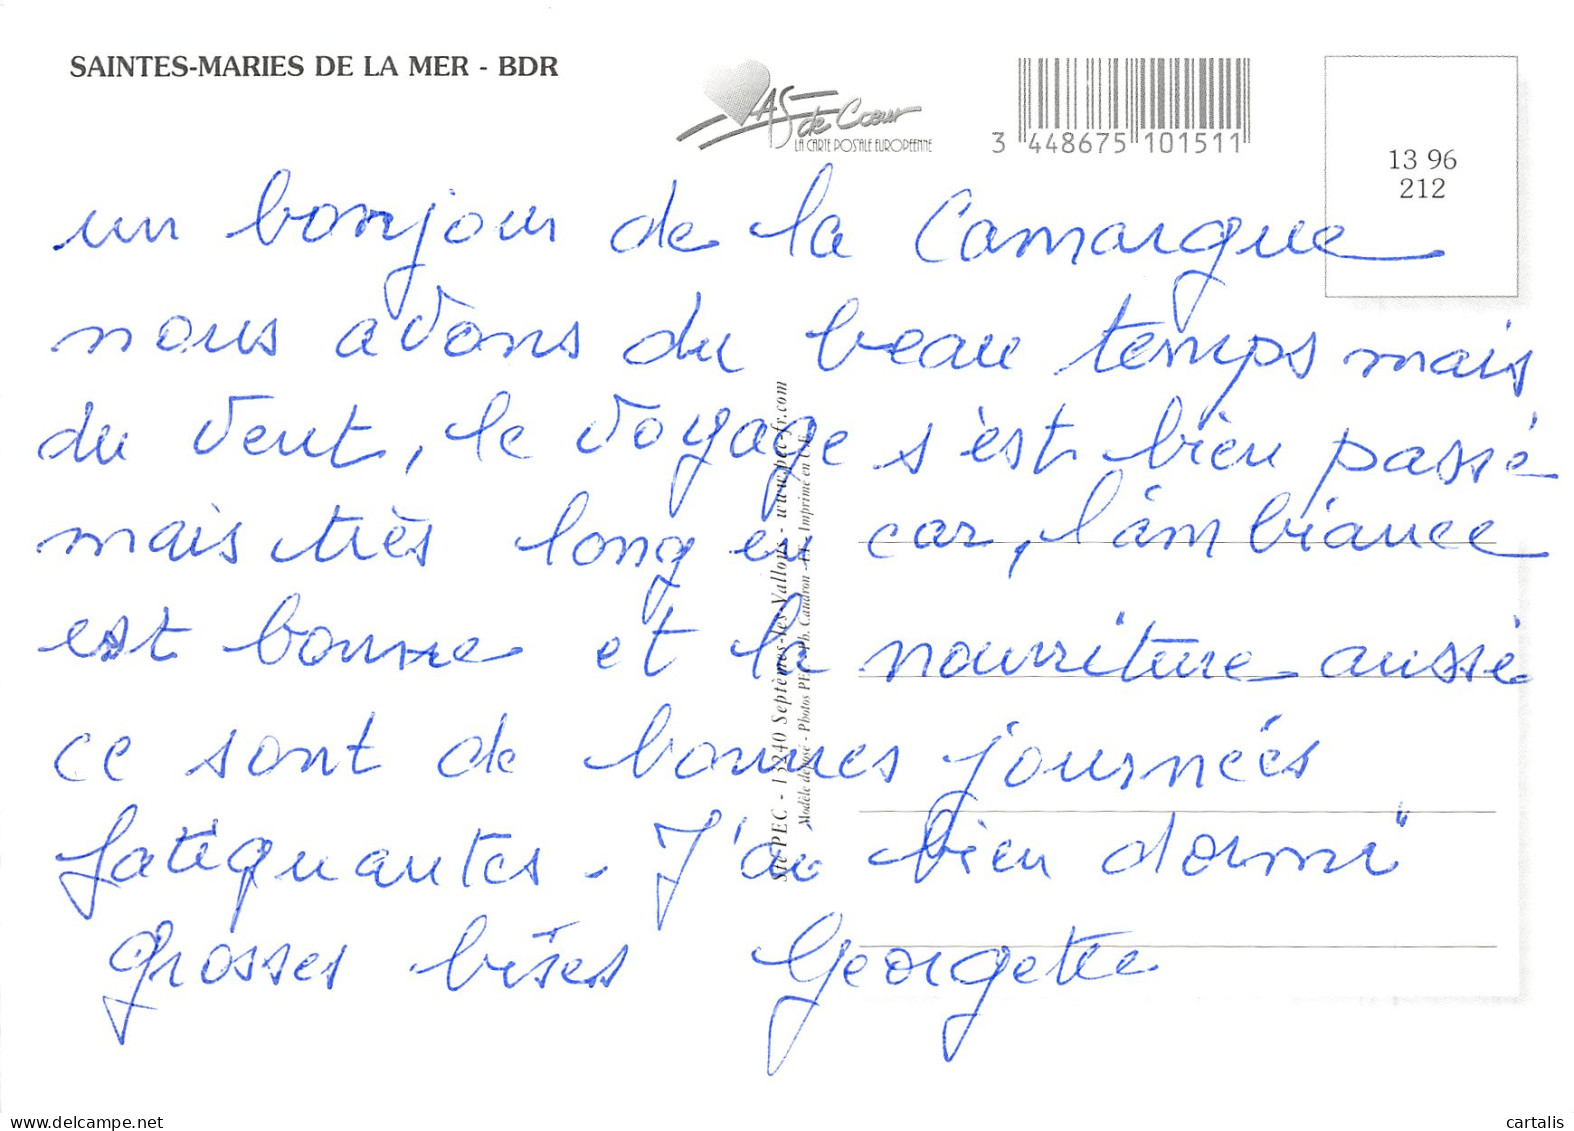 SAINTES-MARIES DE LA MER - BDR
AS de Cœur
LA CARTE POSTALE EUROPEENNE
3 448675 101511
13 96
212
un bonjour de la Camargue
nous avons du beau temps mais
du vent, le voyage s'est bien passé
mais très long en car, l'ambiance
est bonne et la nourriture aussi
ce sont de bonnes journées
fatiguantes - J'ai bien dormi
grosses bises Georgette
Sté PEC - 13240 Septèmes-les-Vallons - www.pec-fr.com
Modèle déposé - Photos PEC/Ph. Caudron - Imprimé en
www.delcampe.net
cartalis